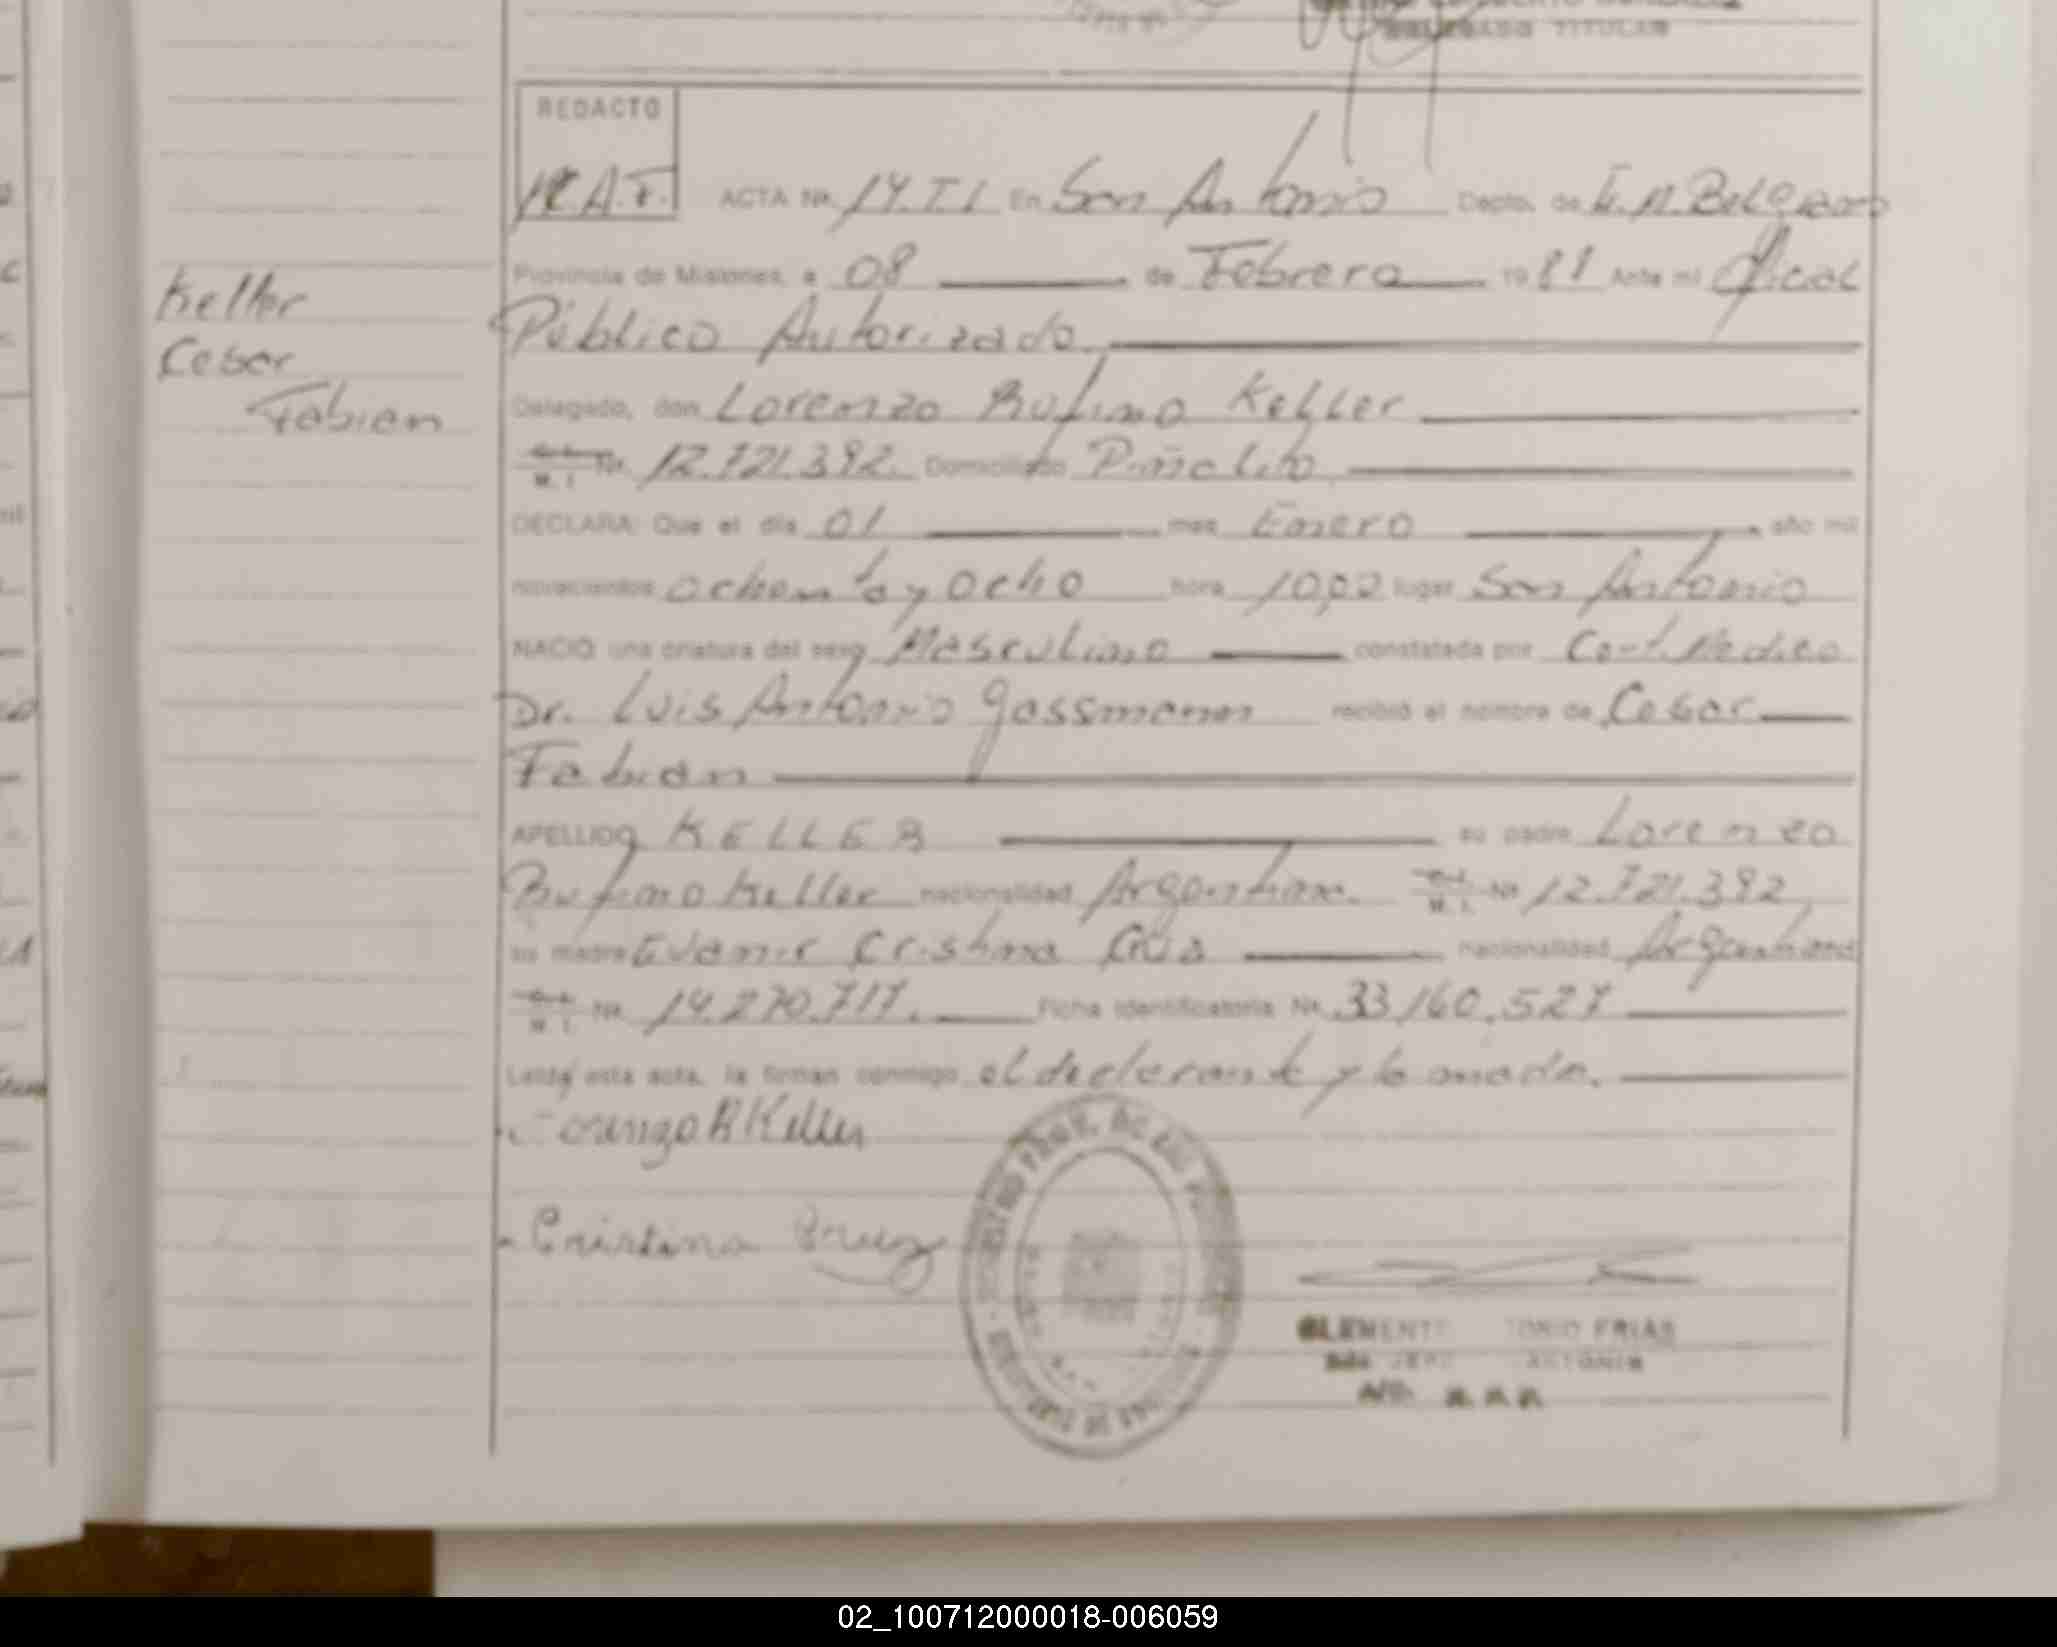 DELEGADO TITULAR
REDACTO
ACTA Nr. 14.T.I En San Antonio Depto. de G.M.Belgrano
Provincia de Misiones, a 08 de Febrero 19 88 Ante mi Oficial
Público Autorizado.
Delegado, don Lorenzo Rufino Keller
M. I. Nr. 12.721.392. Domiciliado Piñalito
DECLARA: Que el día 01 mes Enero año mil
novecientos ochenta y ocho hora 10,00 lugar San Antonio
NACIO una criatura del sexo Masculino constatada por Cert. Medico
Dr. Luis Antonio Gassmann recibió el nombre de Cesar
Fabian
APELLIDO KELLER su padre Lorenzo
Rufino Keller nacionalidad Argentina. M. I. Nr. 12.721.392
su madre Cristina nacionalidad Argentina
M. I. Nr. 14.270.717. Ficha Identificatoria Nr. 33.160.527
Leída esta acta, la firman conmigo el declarante y la madre.
Lorenzo R Keller
Cristina Cruz
CLEMENTE FRIAS
Keller
Cesar
Fabian
02_100712000018-006059